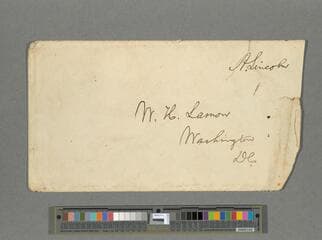 A Lincoln
W. H. Lamon
Washington
D.C.